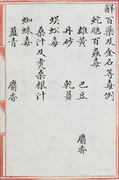 解百藥及金石等毒例
蛇虺百蟲毒
雄黃 巴豆 麝香
丹砂 乾薑
蜈蚣毒
桑汁及煮桑根汁
蜘蛛毒
藍青 麝香